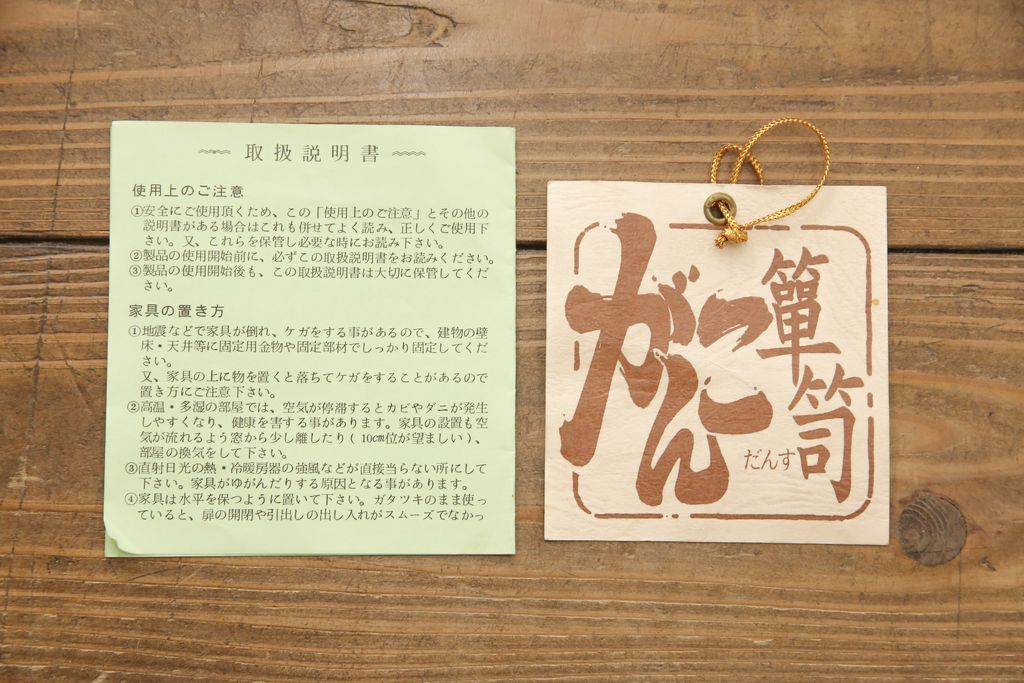 取扱説明書
使用上のご注意
①安全にご使用頂くため、この「使用上のご注意」とその他の
説明書がある場合はこれも併せてよく読み、正しくご使用下
さい。又、これらを保管し必要な時にお読み下さい。
②製品の使用開始前に、必ずこの取扱説明書をお読みください。
③製品の使用開始後も、この取扱説明書は大切に保管してくだ
さい。
家具の置き方
①地震などで家具が倒れ、ケガをする事があるので、建物の壁
床・天井等に固定用金物や固定部材でしっかり固定してくだ
さい。
又、家具の上に物を置くと落ちてケガをすることがあるので
置き方にご注意下さい。
②高温・多湿の部屋では、空気が停滞するとカビやダニが発生
しやすくなり、健康を害する事があります。家具の設置も空
気が流れるよう窓から少し離したり(10㎝位が望ましい)、
部屋の換気をして下さい。
③直射日光の熱・冷暖房器の強風などが直接当らない所にして
下さい。家具がゆがんだりする原因となる事があります。
④家具は水平を保つように置いて下さい。ガタツキのまま使っ
ていると、扉の開閉や引出しの出し入れがスムーズでなかっ
がんこ
簞司
だんす